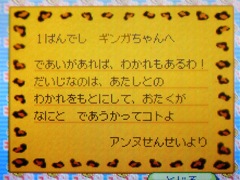 1ばんでし　ギンガちゃんへ
であいがあれば、わかれもあるわ!
だいじなのは、あたしとの
わかれをもとにして、おたくが
なにと　であうかってコトよ
アンヌせんせいより
とじる